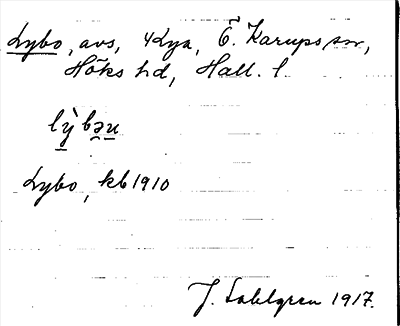 Lybo, avs, 4 Lya, Ö. Karups sn,
Höks hd, Hall. l
lỳbəu
Lybo, kb 1910
J. Sahlgren 1917.